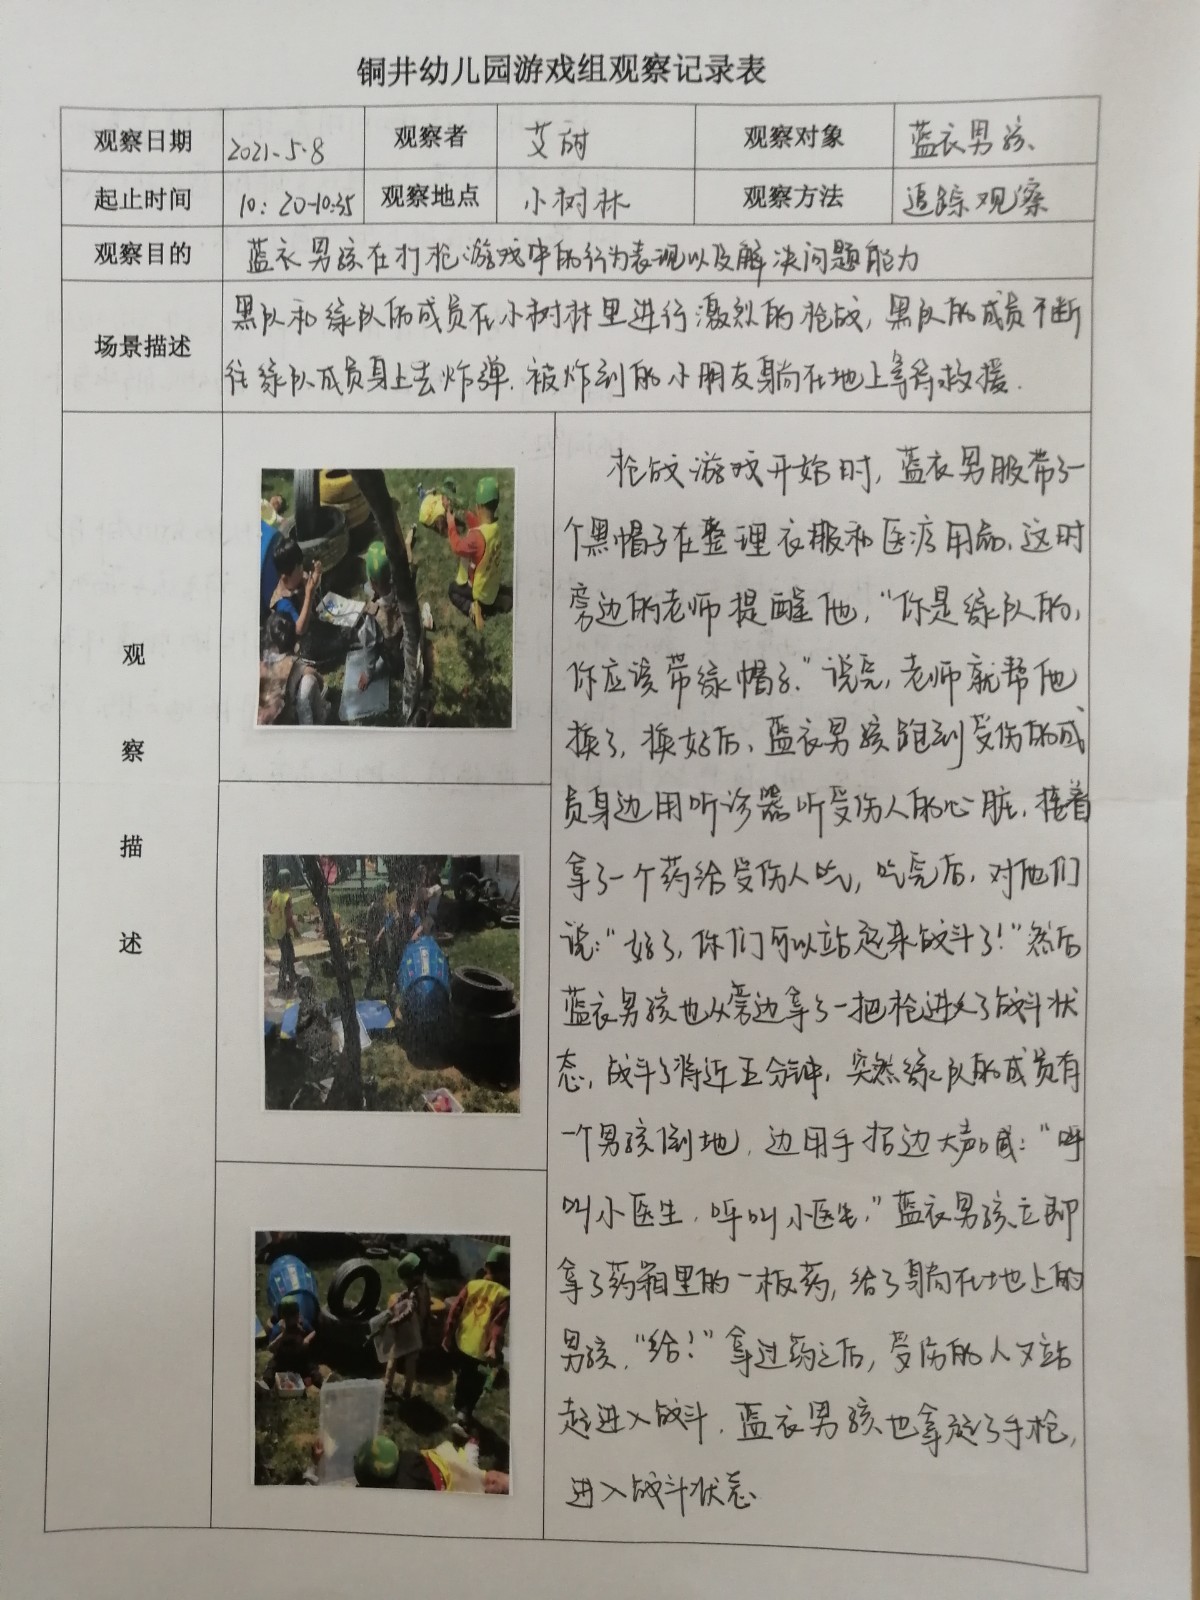 铜井幼儿园游戏组观察记录表
观察日期 2021.5.8 观察者 艾甜 观察对象 蓝衣男孩
起止时间 10:20-10:35 观察地点 小树林 观察方法 追踪观察
观察目的 蓝衣男孩在打枪游戏中的行为表现以及解决问题能力
场景描述
黑队和绿队的成员在小树林里进行激烈的枪战,黑队的成员不断
往绿队成员身上去炸弹.被炸到的小朋友躺在地上等待救援.
观察描述
枪战游戏开始时,蓝衣男服带了一
个黑帽子在整理衣服和医疗用品,这时
旁边的老师提醒他,“你是绿队的,
你应该带绿帽子.”说完,老师就帮他
换了,换好后,蓝衣男孩跑到受伤的成
员身边用听诊器听受伤人的心脏,接着
拿了一个药给受伤人吃,吃完后,对他们
说:“好了,你们可以站起来战斗了!”然后
蓝衣男孩也从旁边拿了一把枪进入了战斗状
态,战斗了将近五分钟,突然绿队的成员有
一个男孩倒地,边用手招边大声喊:“呼
叫小医生,呼叫小医生,”蓝衣男孩立即
拿了药箱里的一板药,给了躺在地上的
男孩,“给!”拿过药之后,受伤的人又站
起进入战斗.蓝衣男孩也拿起了手枪,
进入战斗状态.